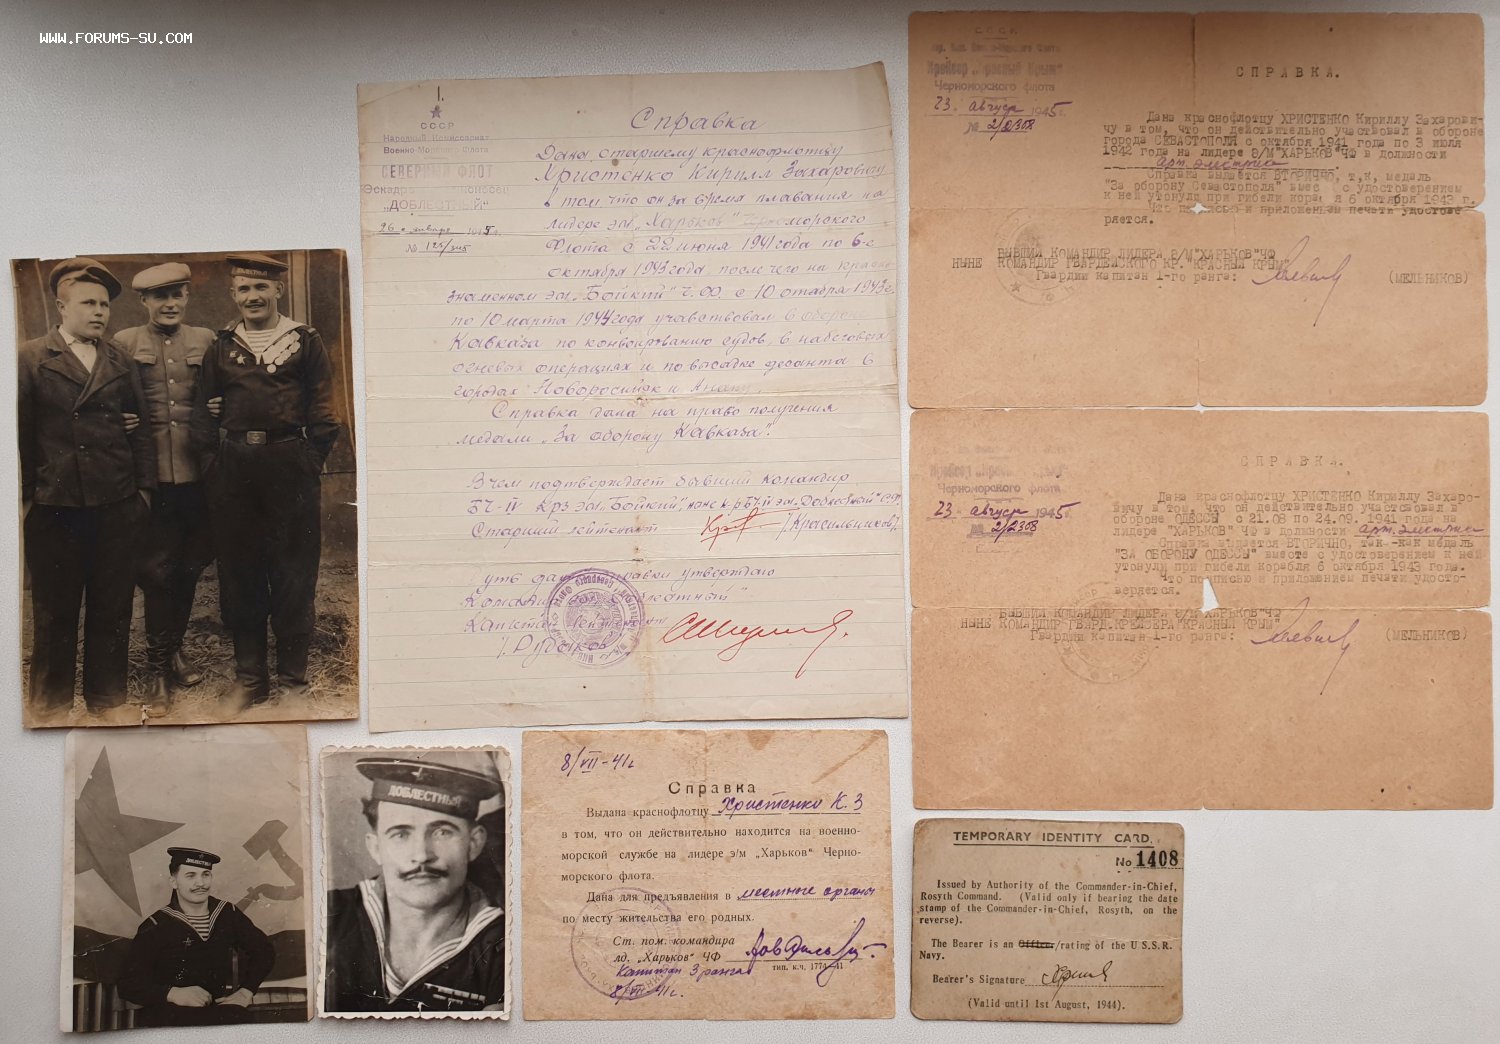 WWW.FORUMS-SU.COM
1.
СССР
Народный Комиссариат
Военно-Морского Флота
СЕВЕРНЫЙ ФЛОТ
Эскадр
"ДОБЛЕСТНЫЙ"
26 января 1945 г.
№
Справка
Дана старшему краснофлотцу
Христенко Кирилл Захаровичу
в том что он за время плавания на
лидере эм. "Харьков" Черноморского
Флота с 22 июня 1941 года по 6-е
октября 1943 года, после чего на красно-
знаменном эм. "Бойкий" Ч.Ф. с 10
по 10 марта 1944 года учавствовал в обороне
Кавказа по конвоированию судов, в набеговых
огневых операциях и по высадке десанта в
городах Новоросийск и Анапу.
Справка дана на право получения
медали "За оборону Кавказа".
В чем подтверждает бывший командир
БЧ-IV Крз эм. "Бойкий",
Старший лейтенант /Красильников/
справки утверждаю
Капитан
/Рубаков
СССР
Крейсер "Красный Крым"
Черноморского флота
23 август 1945
№ 2/2308
СПРАВКА.
Дана краснофлотцу ХРИСТЕНКО Кириллу Захарови-
чу в том, что он действительно участвовал в обороне
города СЕВАСТОПОЛЯ с октября 1941 года по 3 июля
1942 года на лидере Э/М "ХАРЬКОВ" ЧФ в должности
арт. электрика
Справка выдается ВТОРИЧНО, т.к. медаль
"За оборону Севастополя" вмес с удостоверением
к ней утонули при гибели кора я 6 октября 1943 г.
Что п сью и приложением печати удостове-
ряется.
БЫВШИЙ КОМАНДИР ЛИДЕРА Э/М "ХАРЬКОВ" ЧФ
НЫНЕ КОМАНДИР ГВАРДЕЙСКОГО КР. "КРАСНЫЙ КРЫМ"
Гвардии капитан 1-го ранга: (МЕЛЬНИКОВ)
Черноморского флота
23 август 1945
№ 2/2308
СПРАВКА.
Дана краснофлотцу ХРИСТЕНКО Кириллу Захаро-
вичу в том, что он действительно участвовал в
обороне ОДЕССЫ с 21.08 по 24.09. 1941 года на
лидере "ХАРЬКОВ" ЧФ в должности арт. электрика
Справка выдается ВТОРИЧНО, так-как медаль
"ЗА ОБОРОНУ ОДЕССЫ" вместе с удостоверением к ней
утонули при гибели корабля 6 октября 1943 года.
Что подписью и приложением печати удосто-
веряется.
БЫВШИЙ КОМАНДИР ЛИДЕРА Э/М "ХАРЬКОВ" ЧФ
НЫНЕ КОМАНДИР ГВАРД. КРЕЙСЕРА "КРАСНЫЙ КРЫМ"
Гвардии капитан 1-го ранга: (МЕЛЬНИКОВ)
ДОБЛЕСТНЫЙ
ДОБЛЕСТНЫЙ
ДОБЛЕСТНЫЙ
8/VII-41г
Справка
Выдана краснофлотцу Христенко К.З
в том, что он действительно находится на военно-
морской службе на лидере э/м „Харьков" Черно-
морского флота.
Дана для предъявления в местные органы
по месту жительства его родных.
Ст. пом. командира
лд. „Харьков" ЧФ
тип. к.ч. 1774-41
Капитан 3 ранга
8/VII-41г.
TEMPORARY IDENTITY CARD.
No 1408
Issued by Authority of the Commander-in-Chief,
Rosyth Command. (Valid only if bearing the date
stamp of the Commander-in-Chief, Rosyth, on the
reverse).
The Bearer is an Officer/rating of the U.S.S.R.
Navy.
Bearer's Signature
(Valid until 1st August, 1944).